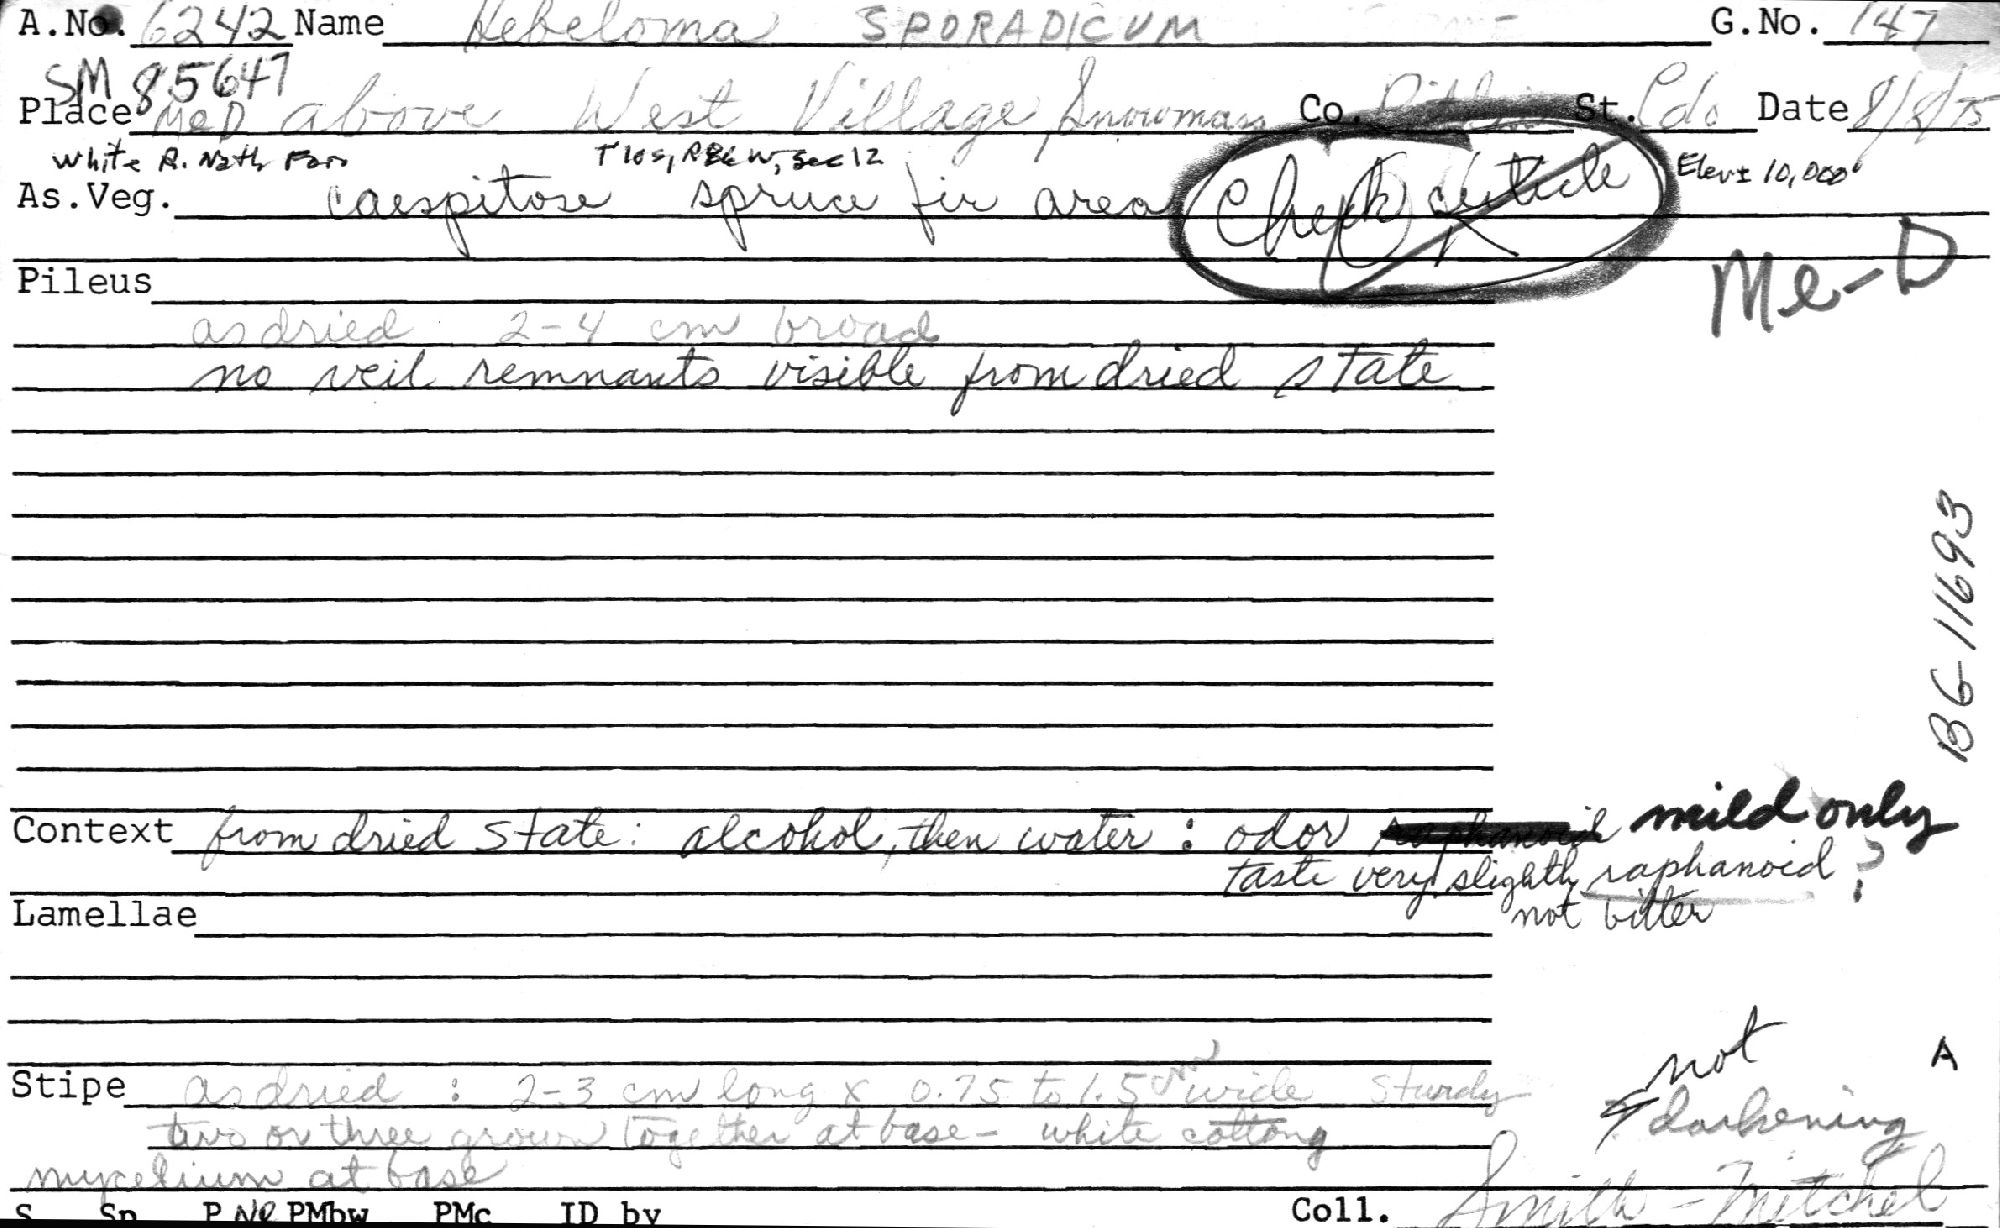 A.No. 6242 Name Hebeloma SPORADICUM G.No. 147
SM 85647
Place MeD above West Village, Snowmass Co. Pitkin St. Cdo Date 8/8/75
White R. Natl. For. T10S, R86W, Sec 12 Elev ± 10,000'
As.Veg. caespitose spruce fir area Check cuticle
Me-D
Pileus
as dried 2-4 cm broad
no veil remnants visible from dried state
BG-11693
Context from dried state: alcohol, then water: odor raphanoid mild only
taste very slightly raphanoid ?
not bitter
Lamellae
not A
Stipe as dried : 2-3 cm long x 0.75 to 1.5 cm wide Sturdy
darkening
two or three grown together at base - white cottony
mycelium at base
S Sp P Ne PMbw PMc ID by Coll. Smith - Mitchel